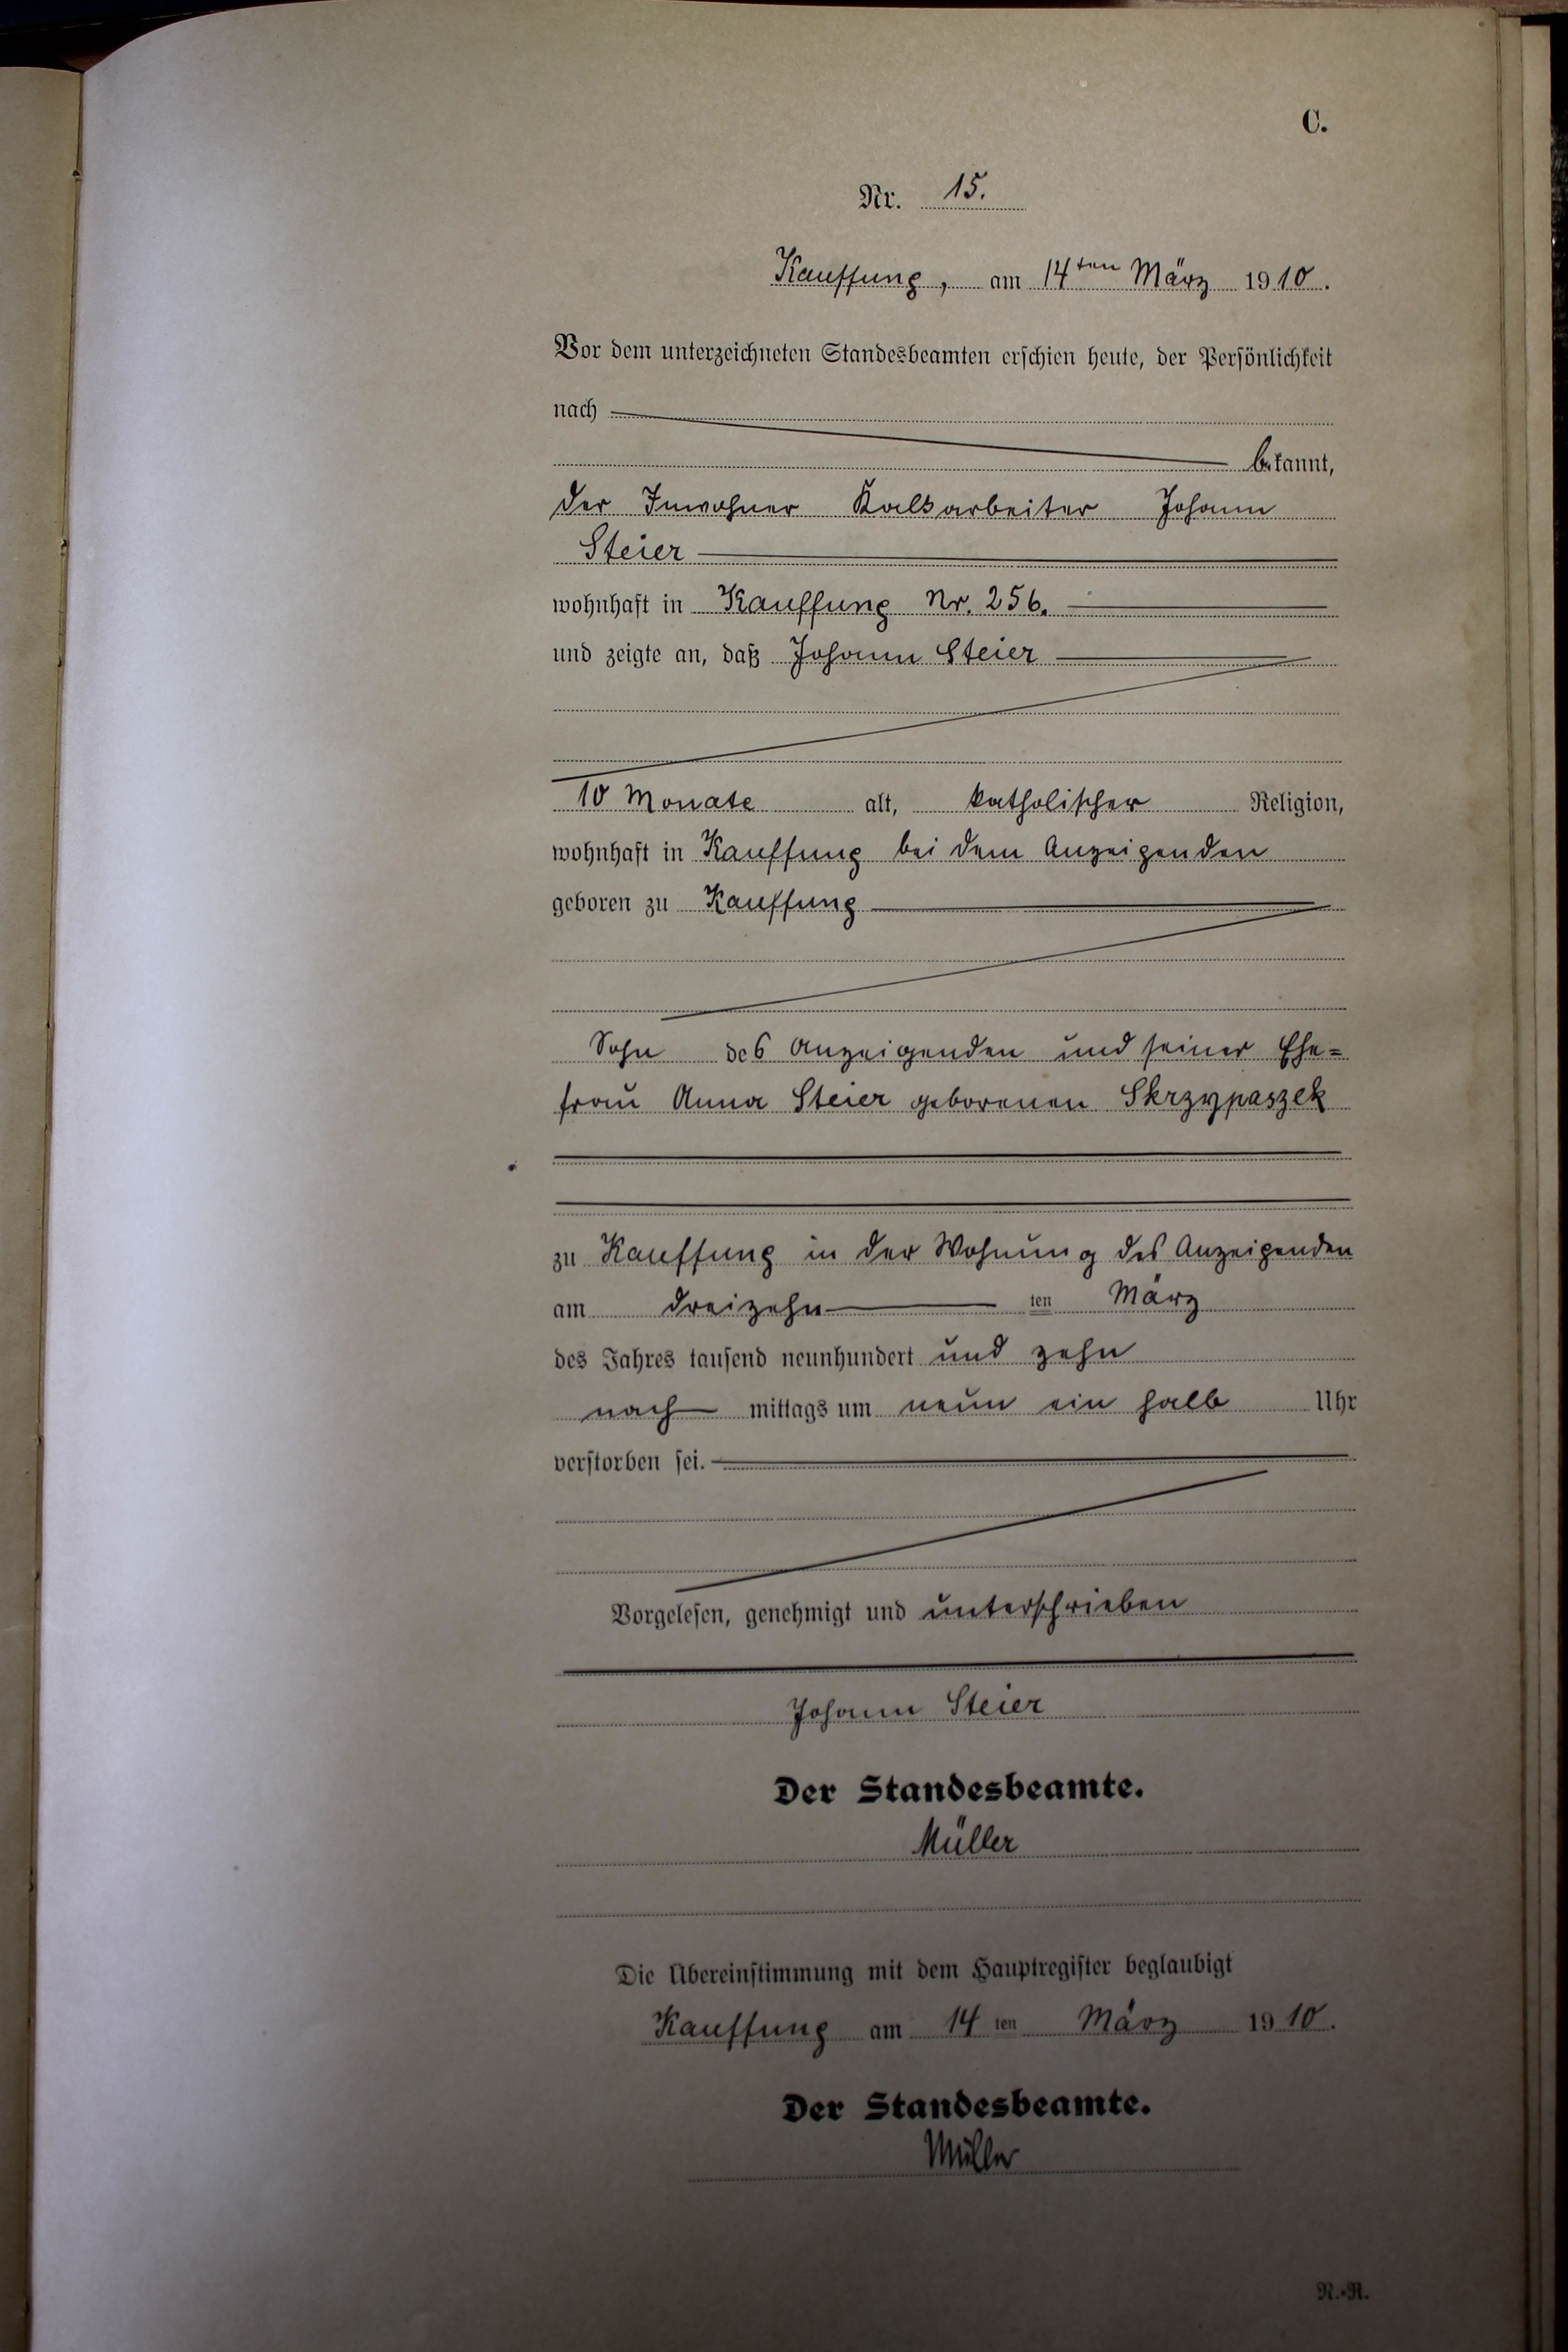 C.
Nr. 15.
Kauffung, am 14ten März 1910.
Vor dem unterzeichneten Standesbeamten erschien heute, der Persönlichkeit
nach
bekannt,
der Inwohner Kalkarbeiter Johann
Steier
wohnhaft in Kauffung Nr. 256.
und zeigte an, daß Johann Steier
10 Monate alt, katholischer Religion,
wohnhaft in Kauffung bei dem Anzeigenden
geboren zu Kauffung
Sohn des Anzeigenden und seiner Ehe=
frau Anna Steier geborenen Skrzypaszek
zu Kauffung in der Wohnung des Anzeigenden
am dreizehn ten März
des Jahres tausend neunhundert und zehn
nach mittags um neun ein halb Uhr
verstorben sei.
Vorgelesen, genehmigt und unterschrieben
Johann Steier
Der Standesbeamte.
Müller
Die Übereinstimmung mit dem Hauptregister beglaubigt
Kauffung am 14 ten März 1910.
Der Standesbeamte.
Müller
R.-R.